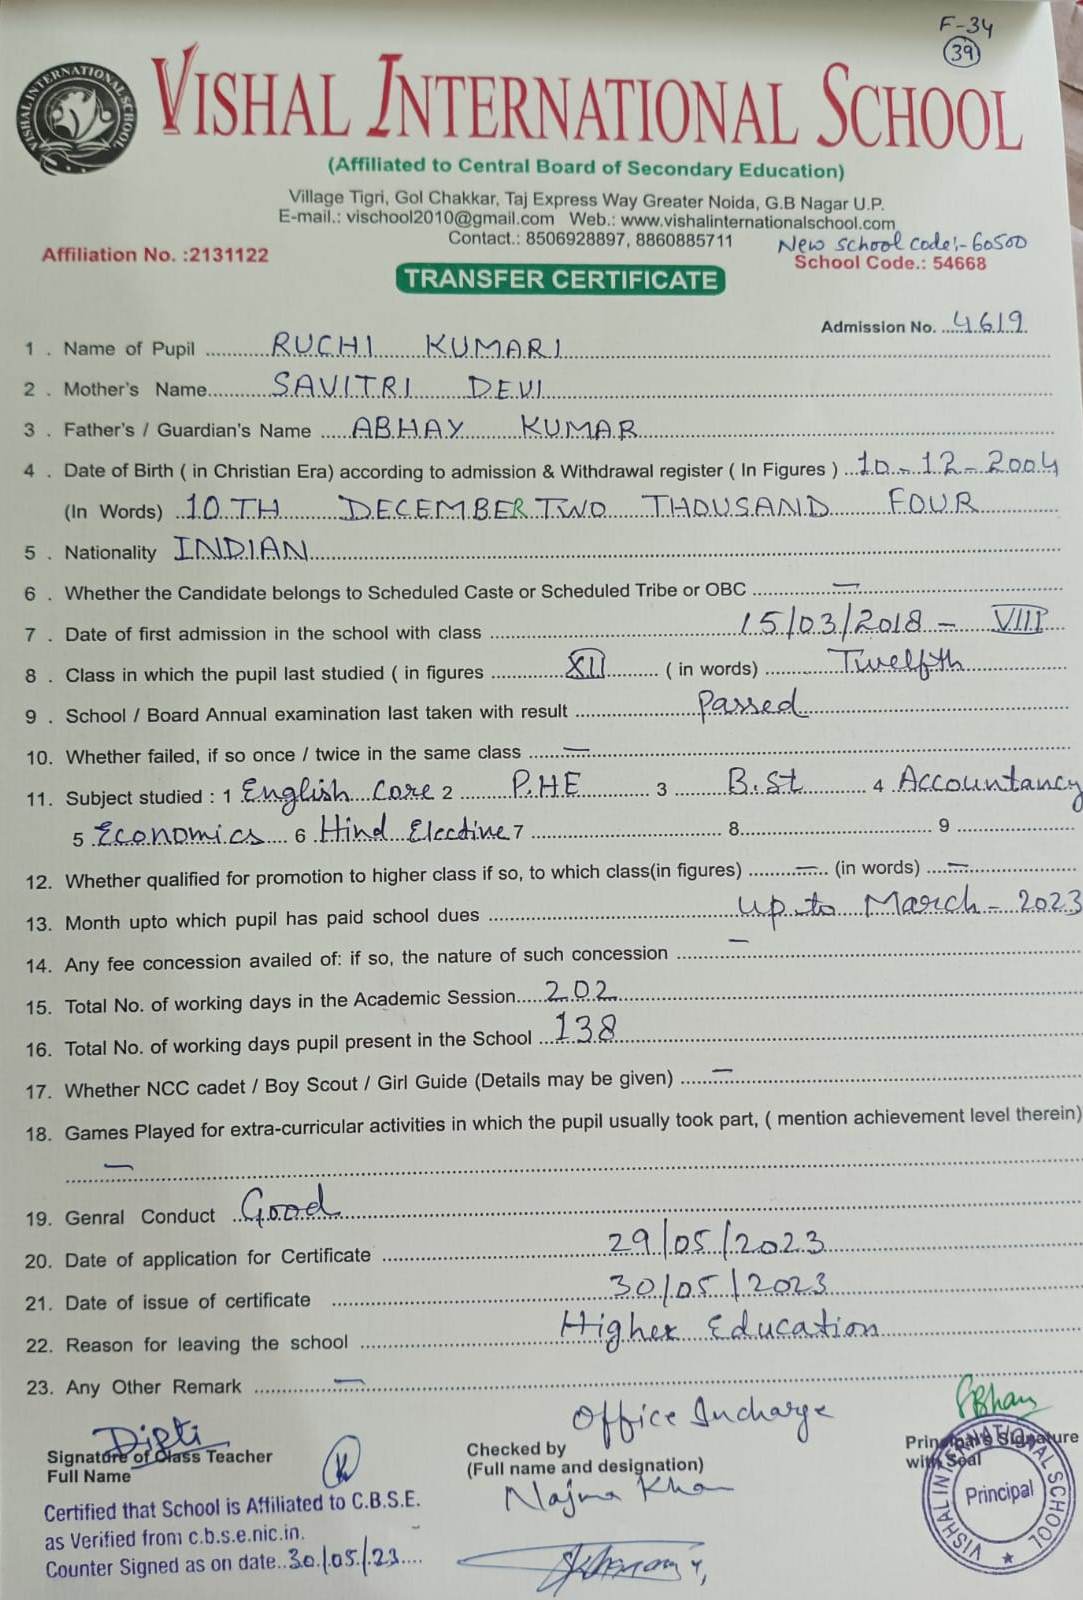 F-34
39
VISHAL INTERNATIONAL SCHOOL
VISHAL INTERNATIONAL SCHOOL
(Affiliated to Central Board of Secondary Education)
Village Tigri, Gol Chakkar, Taj Express Way Greater Noida, G.B Nagar U.P.
E-mail.: vischool2010@gmail.com Web.: www.vishalinternationalschool.com
Contact.: 8506928897, 8860885711
New school code:- 60500
Affiliation No. :2131122
School Code.: 54668
TRANSFER CERTIFICATE
Admission No. ....4619
1 . Name of Pupil ........... RUCHI KUMARI
2 . Mother's Name.......... SAVITRI DEVI
3 . Father's / Guardian's Name .... ABHAY KUMAR
4 . Date of Birth ( in Christian Era) according to admission & Withdrawal register ( In Figures ) ..10-12-2004
(In Words) ..10TH DECEMBER TWO THOUSAND FOUR
5 . Nationality INDIAN
6 . Whether the Candidate belongs to Scheduled Caste or Scheduled Tribe or OBC .......... —
7 . Date of first admission in the school with class .......... 15/03/2018 - VIII
8 . Class in which the pupil last studied ( in figures ............ XII ......... ( in words) .......... Twelfth
9 . School / Board Annual examination last taken with result .......... Passed
10. Whether failed, if so once / twice in the same class ...... —
11. Subject studied : 1 English Core 2 ........ P.HE ........... 3 ........ B.St ......... 4 .Accountancy
5 Economics .... 6 Hind Elective 7 .......... 8.......... 9 ..........
12. Whether qualified for promotion to higher class if so, to which class(in figures) ........ — .. (in words) .... —
13. Month upto which pupil has paid school dues .......... up to March - 2023
14. Any fee concession availed of: if so, the nature of such concession .......... —
15. Total No. of working days in the Academic Session..... 202
16. Total No. of working days pupil present in the School ... 138
17. Whether NCC cadet / Boy Scout / Girl Guide (Details may be given) ...... —
18. Games Played for extra-curricular activities in which the pupil usually took part, ( mention achievement level therein)
—
19. Genral Conduct .. Good
20. Date of application for Certificate .......... 29/05/2023
21. Date of issue of certificate .......... 30/05/2023
22. Reason for leaving the school .......... Higher Education
23. Any Other Remark .......... —
Dipti
Office Incharge
Signature of Class Teacher
Full Name
Checked by
(Full name and designation)
Najma Khan
Principal's Signature
with Seal
VISHAL INTERNATIONAL SCHOOL
Principal
Certified that School is Affiliated to C.B.S.E.
as Verified from c.b.s.e.nic.in.
Counter Signed as on date..30/05/23....